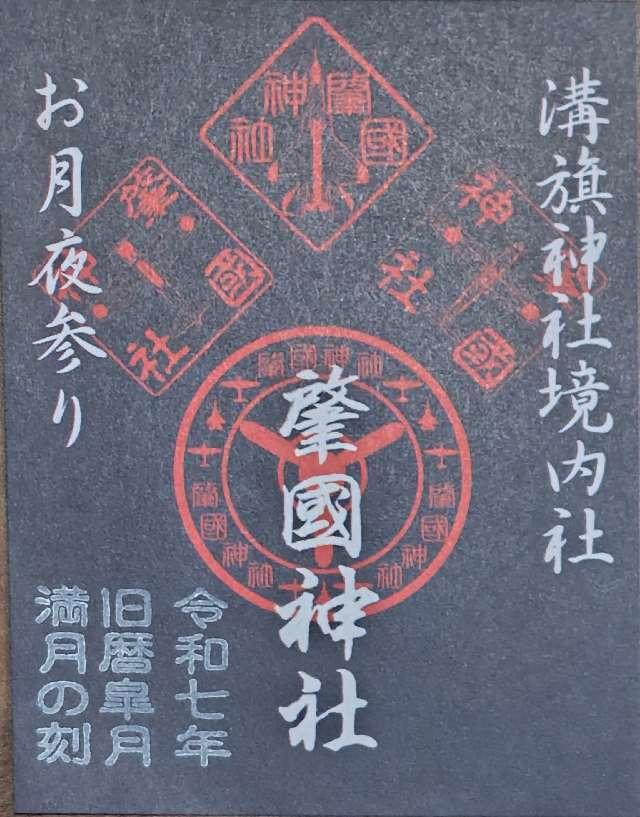 溝旗神社境内社
肇國神社
お月夜参り
令和七年
旧暦皐月
満月の刻
肇國神社
肇國神社
肇國神社
肇國神社
肇國神社
肇國神社